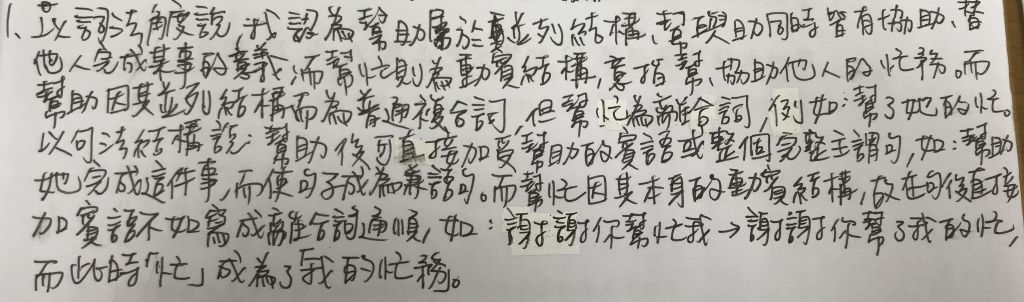 1、以詞法角度說，我認為幫助屬於並列結構，幫與助同時皆有協助、替
他人完成某事的意義，而幫忙則為動賓結構，意指幫、協助他人的忙務。而
幫助因其並列結構而為普通複合詞，但幫忙為離合詞，例如：幫了她的忙。
以句法結構說：幫助後可直接加受幫助的賓語或整個完整主謂句，如：幫助
她完成這件事，而使句子成為兼語句。而幫忙因其本身的動賓結構，故在句後直接
加賓語不如寫成離合詞通順，如：謝謝你幫忙我→謝謝你幫了我的忙，
而此時「忙」成為了「我的忙務。